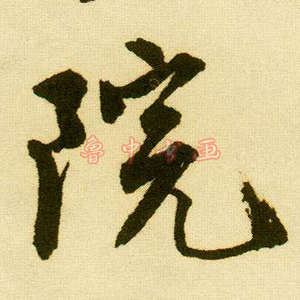 院
鲁中书画